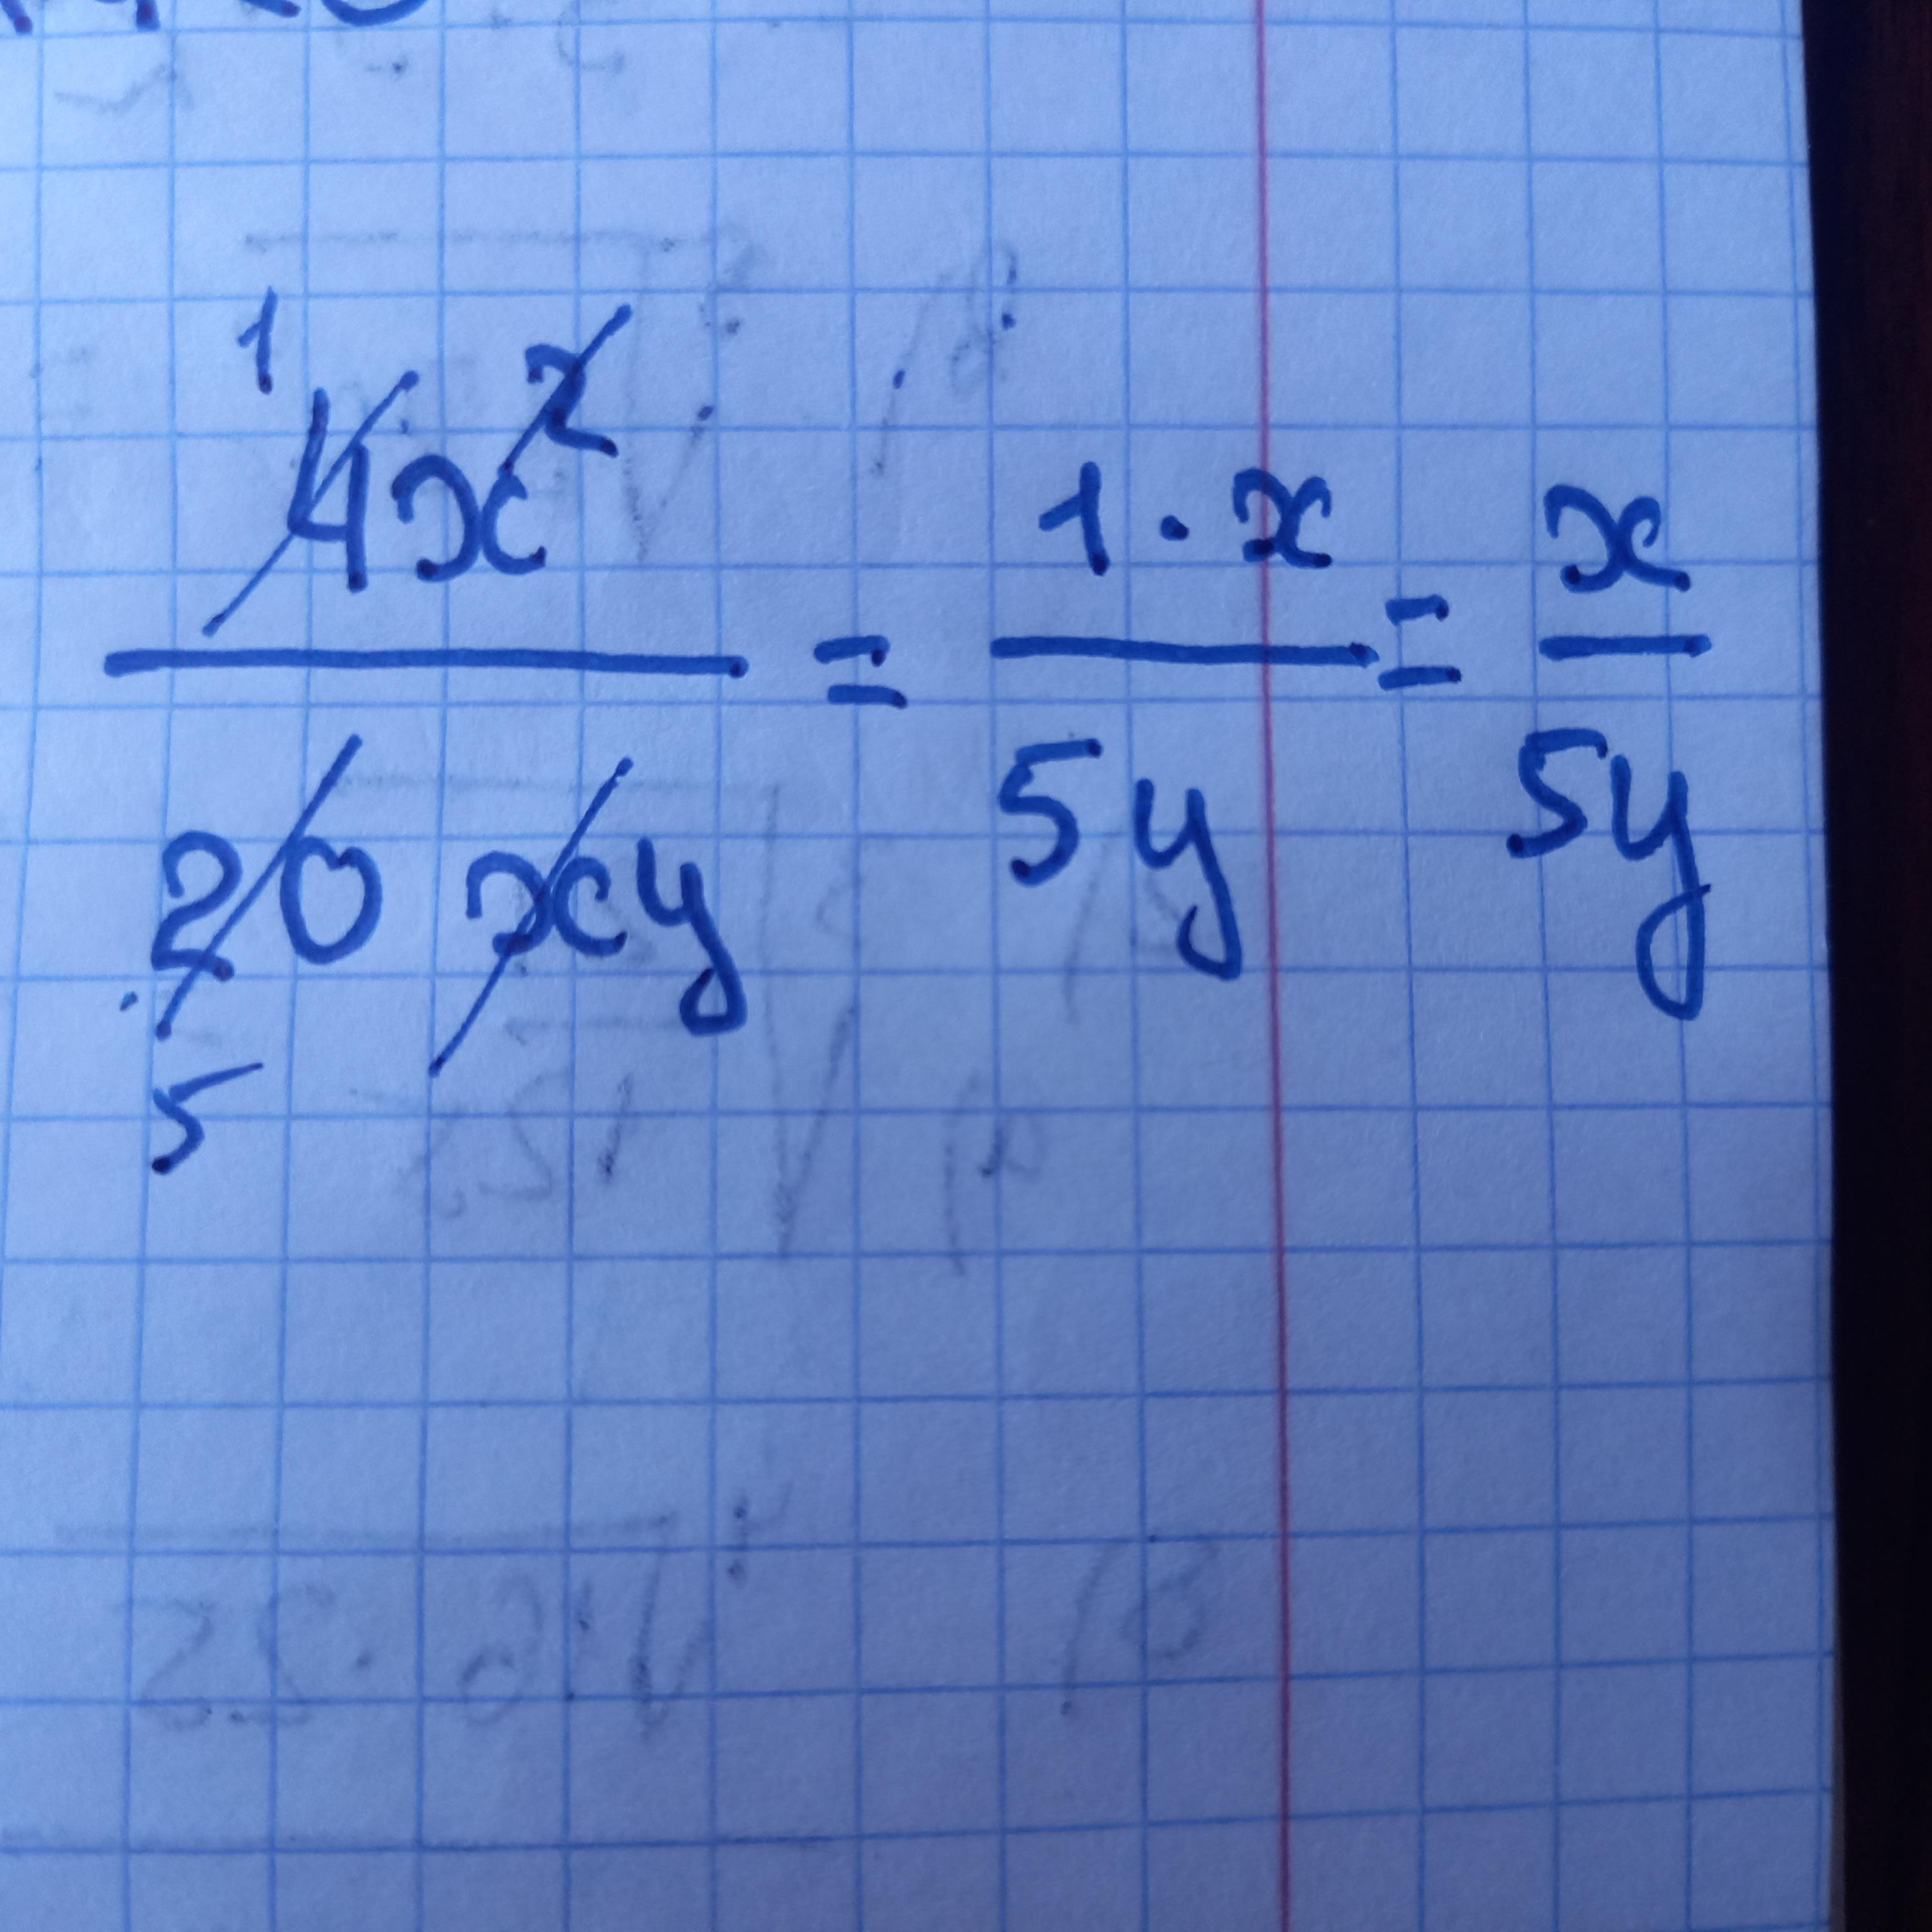 1
4x² / 20xy = 1 · x / 5y = x / 5y
5